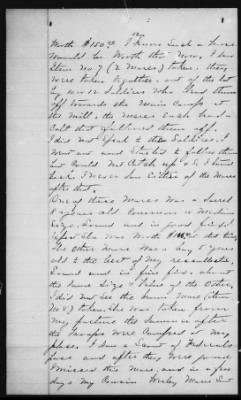 worth $150.00 I know such a horse
would be worth that now, I saw
Item No 7 (2 Mares) taken. they
were taken together, out of the lot
by 10 or 12 Soldiers who led them
off towards the main Camp at
the Mill, the Mares each had a
Colt that followed them off.
I did not speak to the Soldiers. I
went out and started to follow them
but could not catch up & I turned
back. I never saw either of the Mares
after that.
One of these Mares was a Sorrel
8 years old Common or Medium
Size. Sound and in good flesh
She was worth
The other Mare was a bay 5 years
old to the best of my recollection,
Sound and in fine fix. about
the same size & value of the other,
I did not see the Mare (Item
No 8) taken, She was taken from
my pasture this Summer after
the troops were Camped at my
place. I saw a Squad of Federals
pass and after they were gone
I missed this mare, and in a few
days my Cousin Wesley Mares